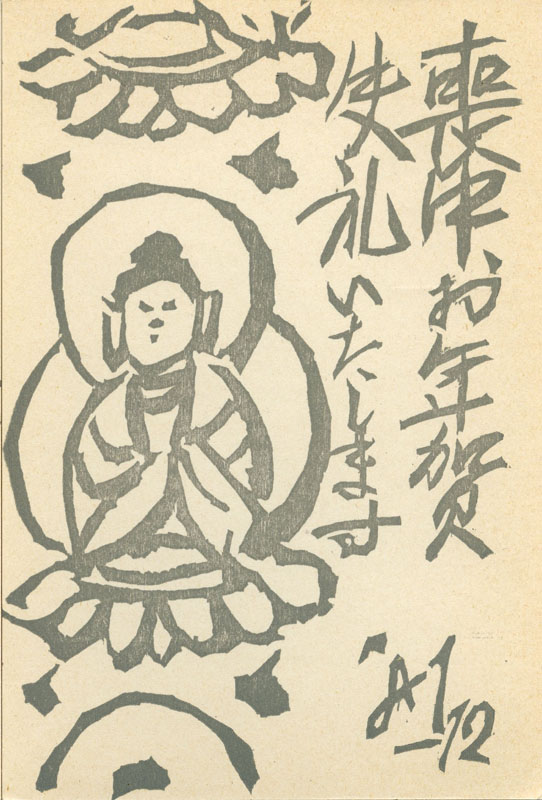 喪中お年賀
失礼いたします